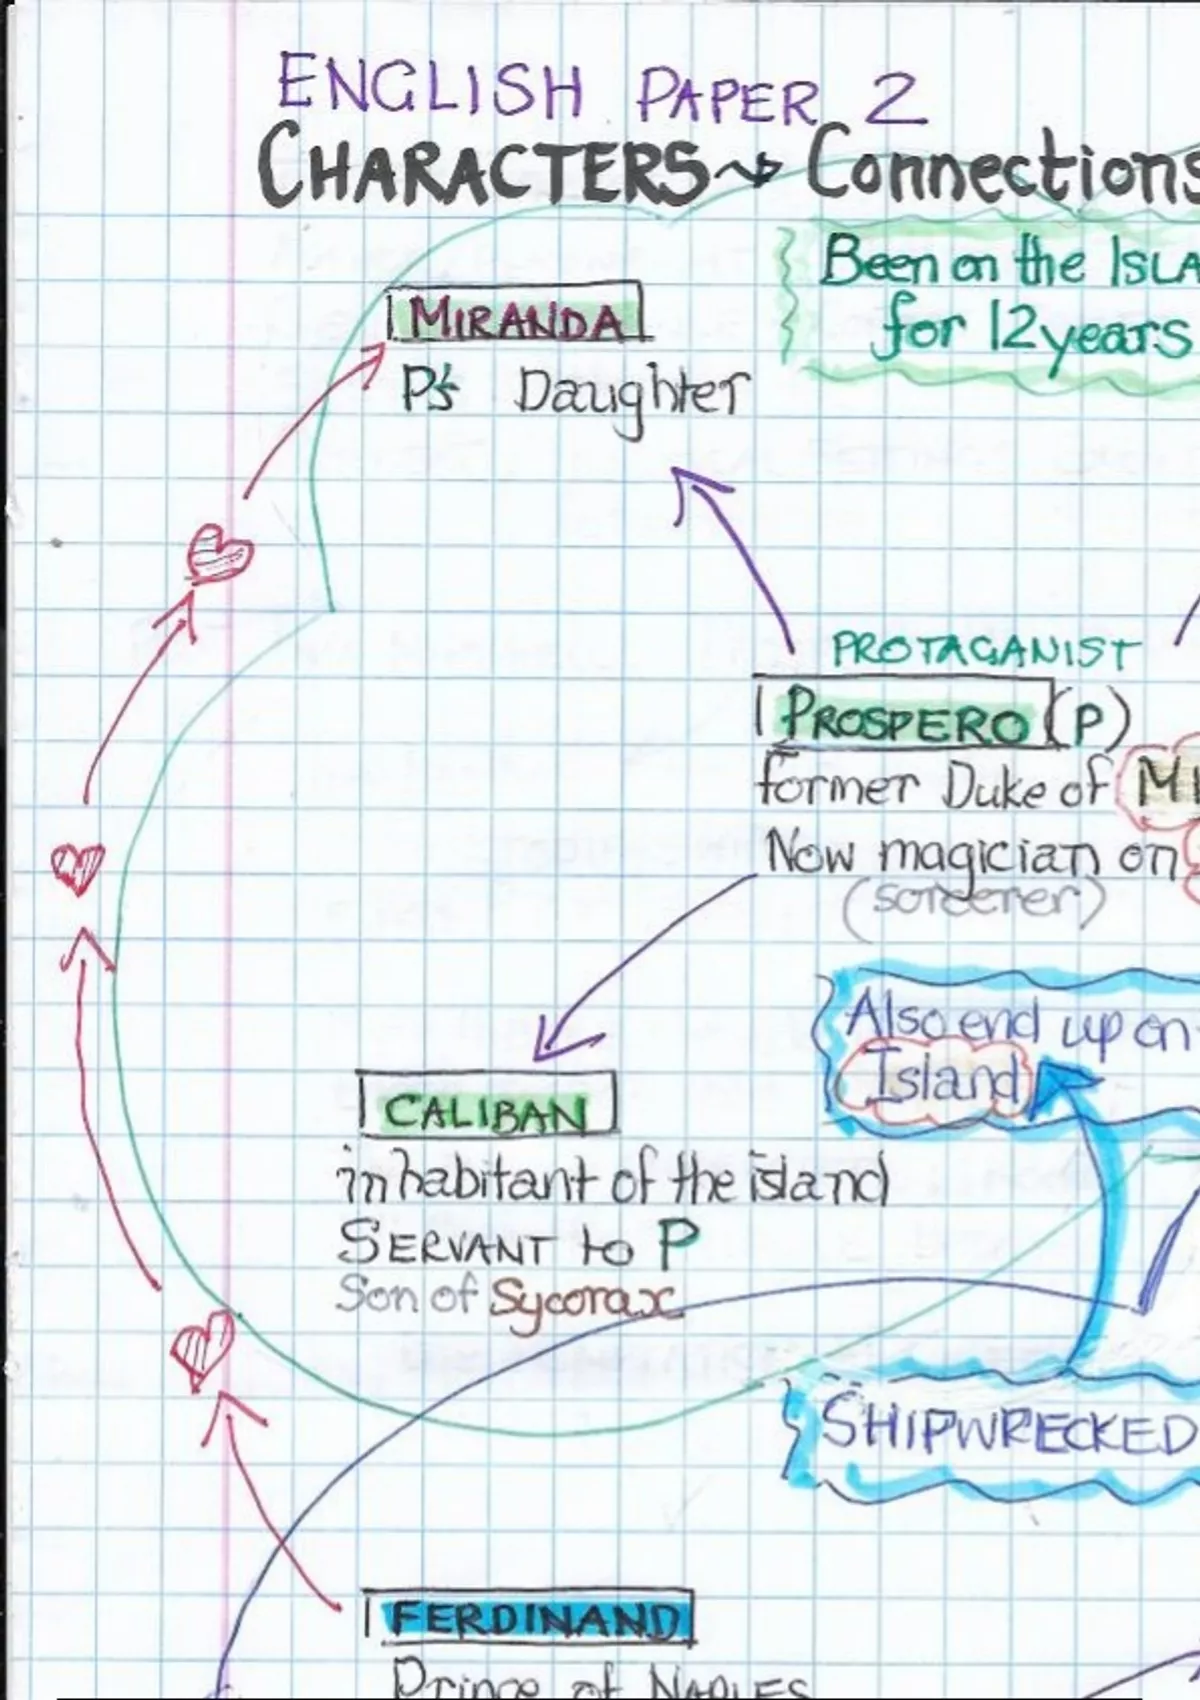 ENGLISH PAPER 2
CHARACTERS → Connections
Been on the ISLA
for 12 years
MIRANDA
P's Daughter
PROTAGANIST
PROSPERO (P)
former Duke of MI
Now magician on
(sorcerer)
Also end up on
Island
CALIBAN
inhabitant of the island
SERVANT to P
Son of Sycorax
SHIPWRECKED
FERDINAND
Prince of NAPLES